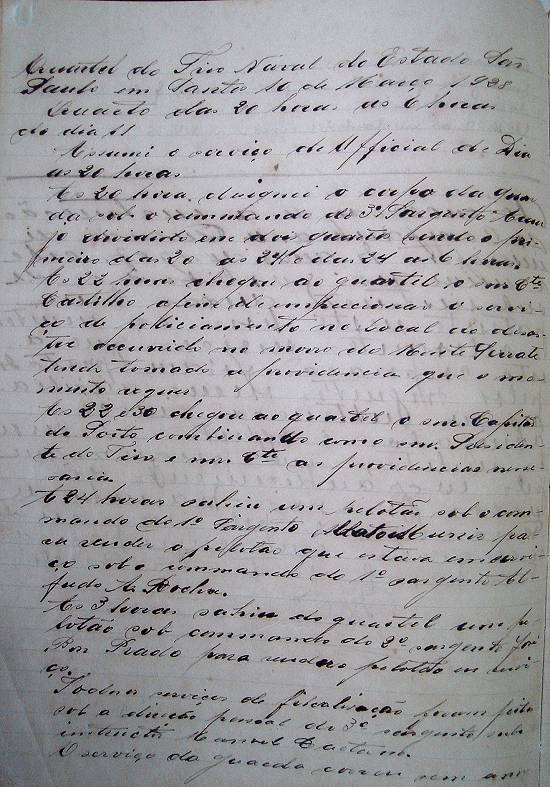 Quartel do Tiro Naval do Estado São
Paulo em Santos 10 de Março 1928
Quarto das 20 horas as 6 horas
do dia 11
Assumi o serviço de Official de Dia
as 20 horas.
As 20 horas designei o corpo da guar
da sob o commando do 3º Sargento
dividido em dois quartos sendo o pri-
meiro das 20 as 24 e das 24 as 6 horas
As 22 horas chegou ao quartel o snr Cte
afim de impecionar o servi-
ço de policiamento no local do desas-
tre occurrido no morro do Monte Serrate
tendo tomado a providencia que o mo-
mento requer
As 22 e 30 chegou ao quartel o snr Capitão
do Porto, combinando como snr Presiden-
te do Tiro e snr Cte as providencias neces-
saria
A 24 horas sahiu um pelotão sob o com-
mando do 1º Sargento Muniz pa-
ra render o pelotão que estava em servi-
ço sob o commando do 1º sargento Al-
fredo A. Rocha.
As 3 horas sahiu do quartel um pe-
lotão sob commando do 2º sargento
Prado para render o pelotão em servi-
ço.
Todos serviços de fiscalisação foram feito
sob a direção pessoal do 3º sargento
Manoel Caetano.
O serviço da guarda correu sem